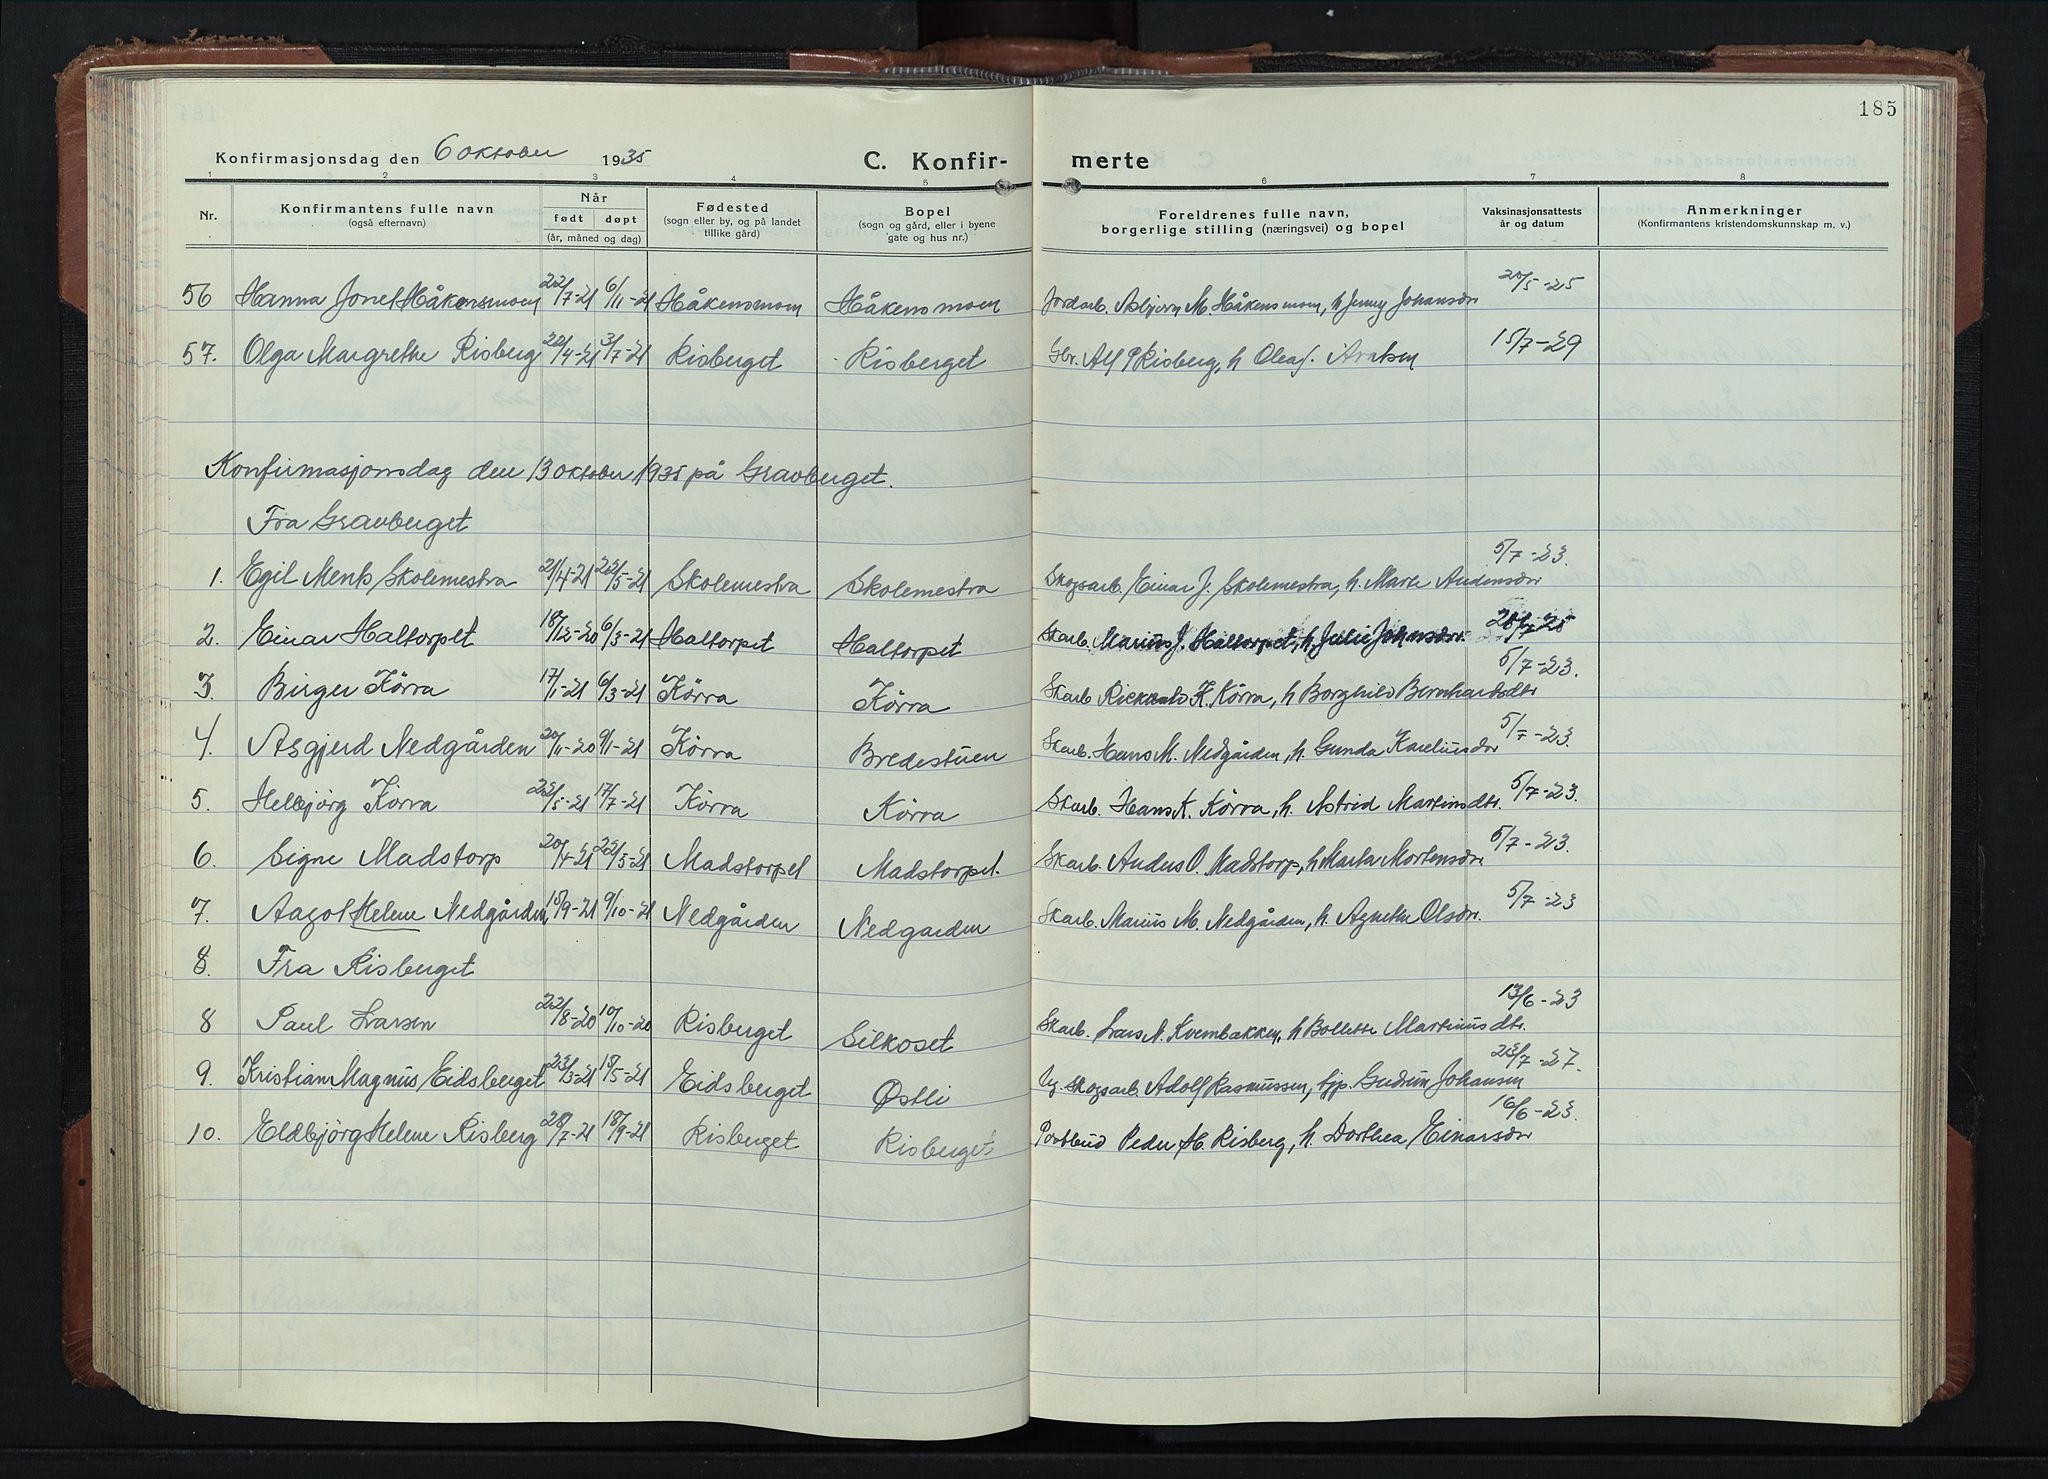 185
Konfirmasjonsdag den 6 oktober 1935 C. Konfir- merte
1 2 3 4 5 6 7 8
Nr. Konfirmantens fulle navn (også efternavn) Når født døpt (år, måned og dag) Fødested (sogn eller by, og på landet tillike gård) Bopel (sogn og gård, eller i byene gate og hus nr.) Foreldrenes fulle navn, borgerlige stilling (næringsvei) og bopel Vaksinasjonsattests år og datum Anmerkninger (Konfirmantens kristendomskunnskap m. v.)
56 Hanna Jonet Håkensmoen 22/7-21 6/11-21 Håkensmoen Håkensmoen Jordarb. Asbjørn M. Håkensmoen, h. Jenny Johansdr 20/5-25
57. Olga Margrethe Risberg 22/4-21 3/7-21 Risberget Risberget Gbr. Alf P Risberg, h Olea J. 15/7-29
Konfirmasjonsdag den 13 oktober 1935 på Gravberget.
Fra Gravberget
1. Egil Menk Skolemestra 21/4-21 22/5-21 Skolemestra Skolemestra Skogsarb. Einar J. Skolemestra, h. Marte Andersdr 5/7-23.
2. Einar Haltorpet 18/12-20 6/3-21 Haltorpet Haltorpet Skarb. Marius J. Haltorpet, h. Julie Johansdr.
3. Birger Körra 17/1-21 6/3-21 Körra Körra Skarb. Rickard K. Körra, h Borghild Bernhardsdtr 5/7-23.
4. Asgjerd Nedgården 20/11-20 9/1-21 Körra Bredestuen Skarb. Hans M. Nedgården, h. Gunda Kareliusdr 5/7-23.
5. Helbjörg Körra 22/5-21 17/7-21 Körra Körra Skarb. Hans K. Körra, h. Astrid Martinsdtr. 5/7-23.
6. Signe Madstorp 20/4-21 22/5-21 Madstorpet Madstorpet. Skarb. Anders O. Madstorp, h Marta Mortensdr 5/7-23.
7. Aagot Helene Nedgården 15/9-21 9/10-21 Nedgården Nedgarden Skarb. Marius M. Nedgården, h. Agnethe Olsdr. 5/7-23
8. Fra Risberget
8 Paul Larsen 22/8-20 10/10-20 Risberget Silkoset Skarb. Lars N. Kvernbakken, h Bollette Martiniusdtr. 13/6-23
9. Kristian Magnus Eidsberget 23/3-21 15/5-21 Eidsberget Østli Ug. skogsarb. Adolf Rasmussen, tjp. Gudrun Johansen 23/7-27.
10. Eldbjörg Helene Risberg 28/7-21 18/9-21 Risberget Risberget Postbud Peder H. Risberg, h. Dorthea Einarsdr 16/6-23.